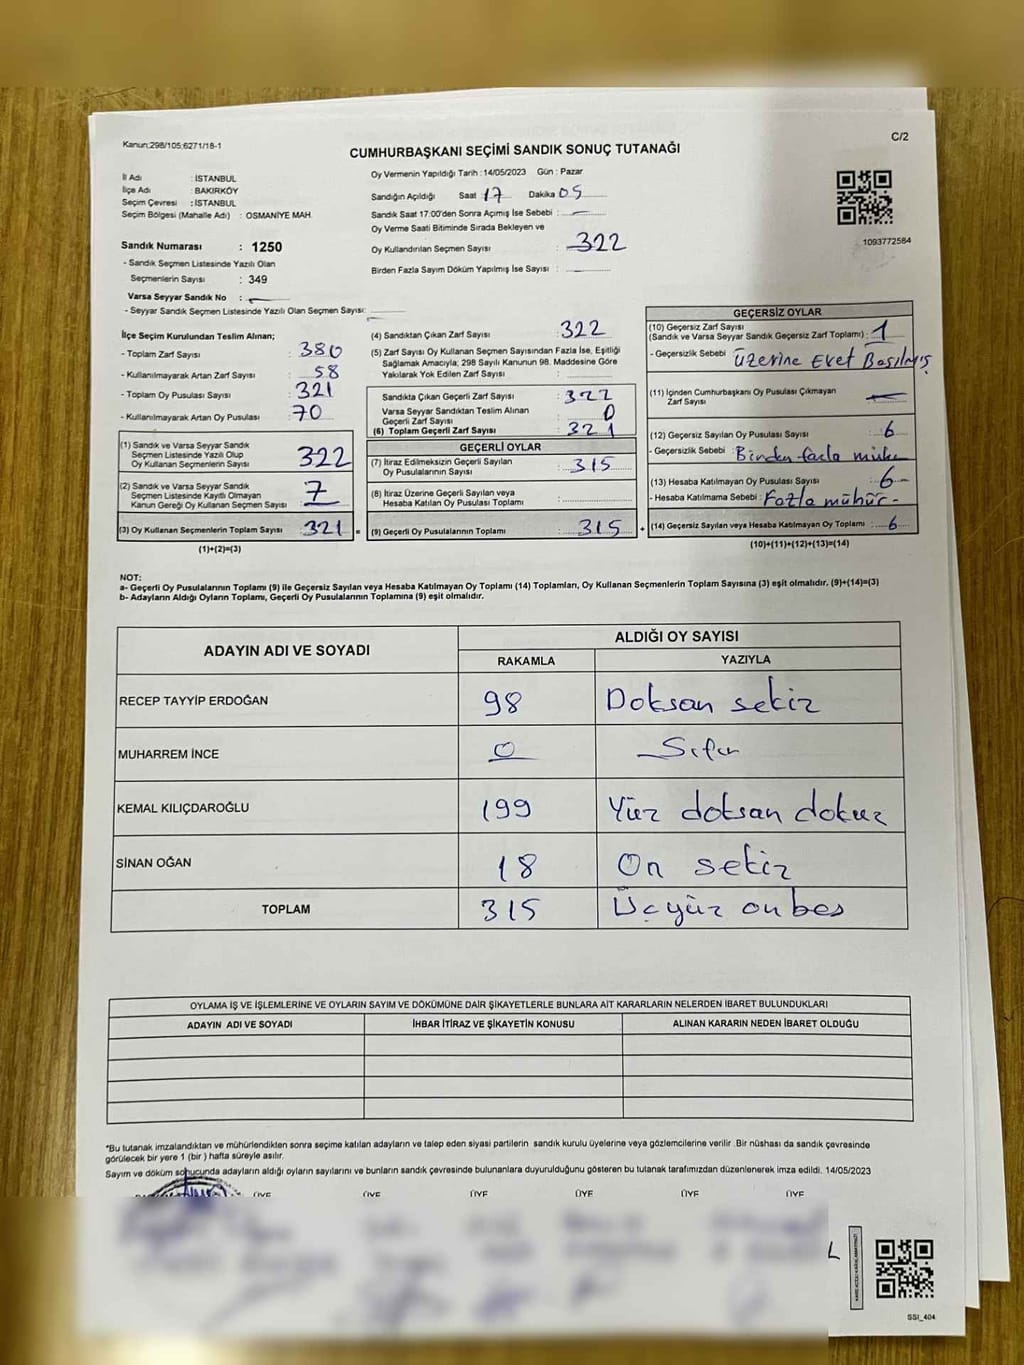 Kanun:298/105;6271/18-1
C/2
CUMHURBAŞKANI SEÇİMİ SANDIK SONUÇ TUTANAĞI
İl Adı : İSTANBUL
İlçe Adı : BAKIRKÖY
Seçim Çevresi : İSTANBUL
Seçim Bölgesi (Mahalle Adı) : OSMANİYE MAH.
Sandık Numarası : 1250
- Sandık Seçmen Listesinde Yazılı Olan
Seçmenlerin Sayısı : 349
Varsa Seyyar Sandık No :
- Seyyar Sandık Seçmen Listesinde Yazılı Olan Seçmen Sayısı:
Oy Vermenin Yapıldığı Tarih : 14/05/2023 Gün : Pazar
Sandığın Açıldığı Saat 17 Dakika 05
Sandık Saat 17:00'den Sonra Açımış İse Sebebi :
Oy Verme Saati Bitiminde Sırada Bekleyen ve
Oy Kullandırılan Seçmen Sayısı : 322
Birden Fazla Sayım Döküm Yapılmış İse Sayısı :
1093772584
İlçe Seçim Kurulundan Teslim Alınan;
- Toplam Zarf Sayısı : 380
- Kullanılmayarak Artan Zarf Sayısı : 58
- Toplam Oy Pusulası Sayısı : 321
- Kullanılmayarak Artan Oy Pusulası : 70
(1) Sandık ve Varsa Seyyar Sandık
Seçmen Listesinde Yazılı Olup
Oy Kullanan Seçmenlerin Sayısı 322
(2) Sandık ve Varsa Seyyar Sandık
Seçmen Listesinde Kayıtlı Olmayan
Kanun Gereği Oy Kullanan Seçmen Sayısı : 7
(3) Oy Kullanan Seçmenlerin Toplam Sayısı : 321 =
(1)+(2)=(3)
(4) Sandıktan Çıkan Zarf Sayısı : 322
(5) Zarf Sayısı Oy Kullanan Seçmen Sayısından Fazla İse, Eşitliği
Sağlamak Amacıyla; 298 Sayılı Kanunun 98. Maddesine Göre
Yakılarak Yok Edilen Zarf Sayısı :
Sandıkta Çıkan Geçerli Zarf Sayısı : 322
Varsa Seyyar Sandıktan Teslim Alınan
Geçerli Zarf Sayısı : 0
(6) Toplam Geçerli Zarf Sayısı : 321
GEÇERLİ OYLAR
(7) İtiraz Edilmeksizin Geçerli Sayılan
Oy Pusulalarının Sayısı : 315
(8) İtiraz Üzerine Geçerli Sayılan veya
Hesaba Katılan Oy Pusulası Toplamı :
(9) Geçerli Oy Pusulalarının Toplamı : 315 +
GEÇERSİZ OYLAR
(10) Geçersiz Zarf Sayısı
(Sandık ve Varsa Seyyar Sandık Geçersiz Zarf Toplamı) : 1
- Geçersizlik Sebebi : üzerine Evet Basılmış
(11) İçinden Cumhurbaşkanı Oy Pusulası Çıkmayan
Zarf Sayısı :
(12) Geçersiz Sayılan Oy Pusulası Sayısı : 6
- Geçersizlik Sebebi : Birden fazla
(13) Hesaba Katılmayan Oy Pusulası Sayısı : 6
- Hesaba Katılmama Sebebi : Fazla mühür -
(14) Geçersiz Sayılan veya Hesaba Katılmayan Oy Toplamı : 6
(10)+(11)+(12)+(13)=(14)
NOT:
a- Geçerli Oy Pusulalarının Toplamı (9) ile Geçersiz Sayılan veya Hesaba Katılmayan Oy Toplamı (14) Toplamları, Oy Kullanan Seçmenlerin Toplam Sayısına (3) eşit olmalıdır. (9)+(14)=(3)
b- Adayların Aldığı Oyların Toplamı, Geçerli Oy Pusulalarının Toplamına (9) eşit olmalıdır.
ADAYIN ADI VE SOYADI
ALDIĞI OY SAYISI
RAKAMLA YAZIYLA
RECEP TAYYİP ERDOĞAN 98 Doksan sekiz
MUHARREM İNCE 0 Sıfır
KEMAL KILIÇDAROĞLU 199 Yüz doksan dokuz
SİNAN OĞAN 18 On sekiz
TOPLAM 315 Üçyüz onbeş
OYLAMA İŞ VE İŞLEMLERİNE VE OYLARIN SAYIM VE DÖKÜMÜNE DAİR ŞİKAYETLERLE BUNLARA AİT KARARLARIN NELERDEN İBARET BULUNDUKLARI
ADAYIN ADI VE SOYADI İHBAR İTİRAZ VE ŞİKAYETİN KONUSU ALINAN KARARIN NEDEN İBARET OLDUĞU
*Bu tutanak imzalandıktan ve mühürlendikten sonra seçime katılan adayların ve talep eden siyasi partilerin sandık kurulu üyelerine veya gözlemcilerine verilir .Bir nüshası da sandık çevresinde
görülecek bir yere 1 (bir ) hafta süreyle asılır.
Sayım ve döküm sonucunda adayların aldığı oyların sayılarını ve bunların sandık çevresinde bulunanlara duyurulduğunu gösteren bu tutanak tarafımızdan düzenlenerek imza edildi. 14/05/2023
ÜYE ÜYE ÜYE ÜYE ÜYE ÜYE
SSI_404